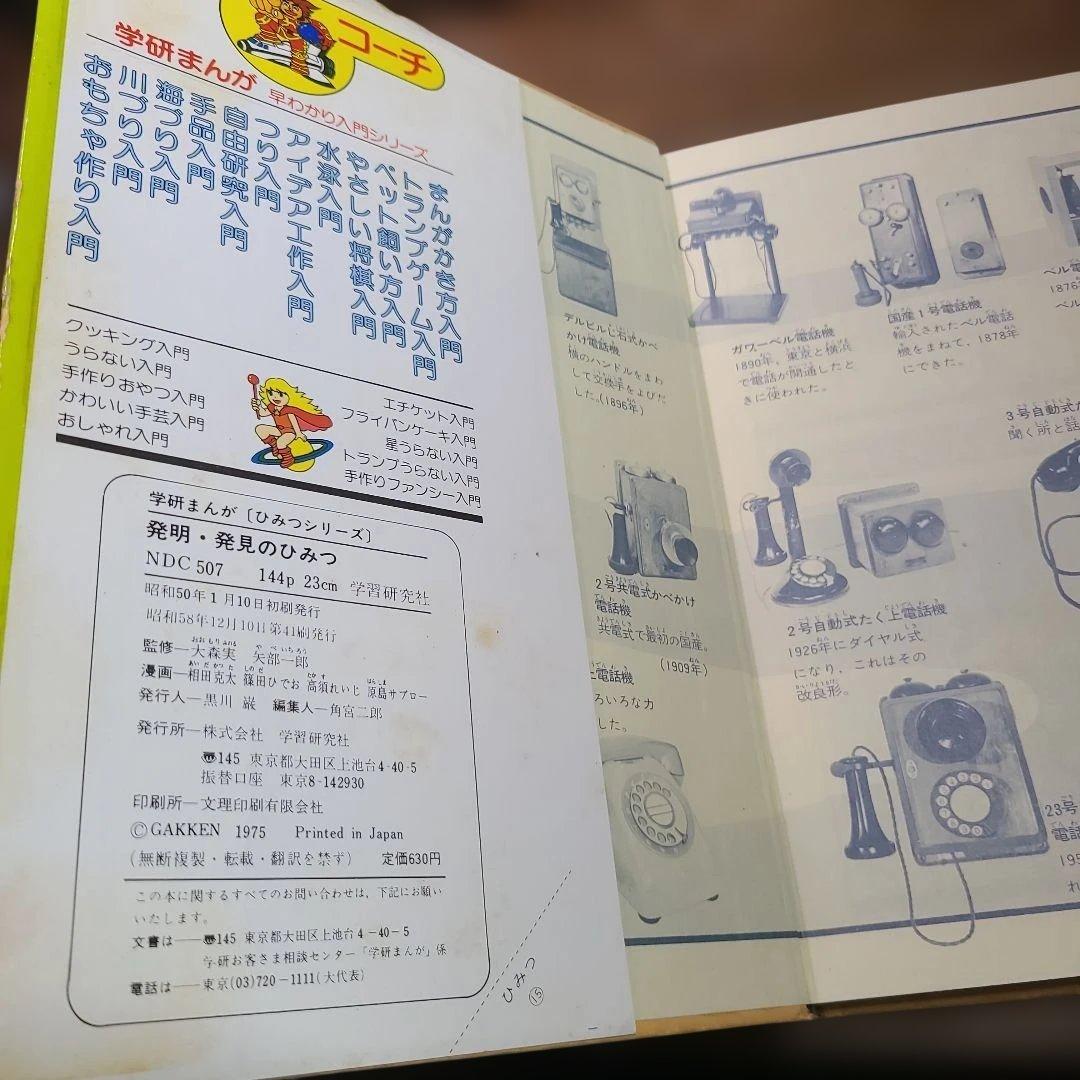 コーチ
学研まんが 早わかり入門シリーズ
まんがかき方入門
トランプゲーム入門
ペット飼い方入門
やさしい将棋入門
水泳入門
アイデア工作入門
つり入門
自由研究入門
手品入門
海づり入門
川づり入門
おもちゃ作り入門
クッキング入門
うらない入門
手作りおやつ入門
かわいい手芸入門
おしゃれ入門
エチケット入門
フライパンケーキ入門
星うらない入門
トランプうらない入門
手作りファンシー入門
学研まんが〔ひみつシリーズ〕
発明・発見のひみつ
NDC 507 144p 23cm 学習研究社
昭和50年1月10日初刷発行
昭和58年12月10日第41刷発行
監修―大森実 矢部一郎
漫画―相田克太 篠田ひでお 高須れいじ 原島サブロー
発行人―黒川 巌 編集人―角宮二郎
発行所―株式会社 学習研究社
〠145 東京都大田区上池台4-40-5
振替口座 東京8-142930
印刷所―文理印刷有限会社
©GAKKEN 1975 Printed in Japan
(無断複製・転載・翻訳を禁ず) 定価630円
この本に関するすべてのお問い合わせは、下記にお願い
いたします。
文書は――〠145 東京都大田区上池台4-40-5
学研お客さま相談センター「学研まんが」係
電話は――東京(03)720-1111(大代表)
ひみつ
⑮
デルビル磁石式かべ
かけ電話機
横のハンドルをまわ
して交換手をよびだ
した。(1896年)
2号共電式かべかけ
電話機
共電式で最初の国産。
(1909年)
上電話機
ろいろな力
した。
ガワーベル電話機
1890年、東京と横浜
で電話が開通したと
きに使われた。
国産1号電話機
輸入されたベル電話
機をまねて、1878年
にできた。
ベル電
1876
ベル
3号自動式
聞く所と話
2号自動式たく上電話機
1926年にダイヤル式
になり、これはその
改良形。
23号
電話
195
れ